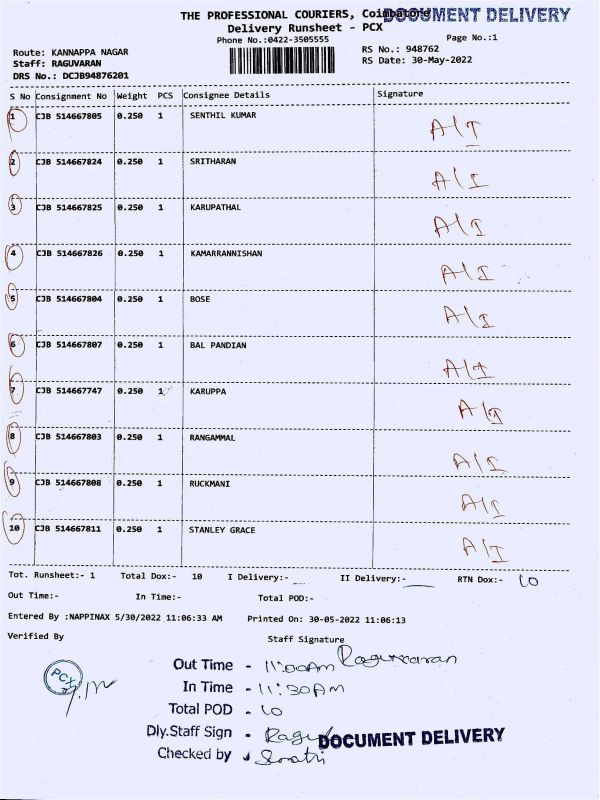 THE PROFESSIONAL COURIERS, Coimbatore
DOCUMENT DELIVERY
Delivery Runsheet - PCX
Phone No.:0422-3505555
Page No.:1
Route: KANNAPPA NAGAR
RS No.: 948762
Staff: RAGUVARAN
RS Date: 30-May-2022
DRS No.: DCJB94876201
S No Consignment No Weight PCS Consignee Details Signature
1 CJB 514667805 0.250 1 SENTHIL KUMAR A/I
2 CJB 514667824 0.250 1 SRITHARAN A/I
3 CJB 514667825 0.250 1 KARUPATHAL A/I
4 CJB 514667826 0.250 1 KAMARRANNISHAN A/I
5 CJB 514667804 0.250 1 BOSE A/I
6 CJB 514667807 0.250 1 BAL PANDIAN A/I
7 CJB 514667747 0.250 1 KARUPPA A/I
8 CJB 514667803 0.250 1 RANGAMMAL A/I
9 CJB 514667808 0.250 1 RUCKMANI A/I
10 CJB 514667811 0.250 1 STANLEY GRACE A/I
Tot. Runsheet:- 1 Total Dox:- 10 I Delivery:- II Delivery:- RTN Dox:- 10
Out Time:- In Time:- Total POD:-
Entered By :NAPPINAX 5/30/2022 11:06:33 AM Printed On: 30-05-2022 11:06:13
Verified By Staff Signature
Raguvaran
PCX
Out Time - 11:00AM
In Time - 11:30AM
Total POD - 10
Dly.Staff Sign - Ragu
DOCUMENT DELIVERY
Checked by -